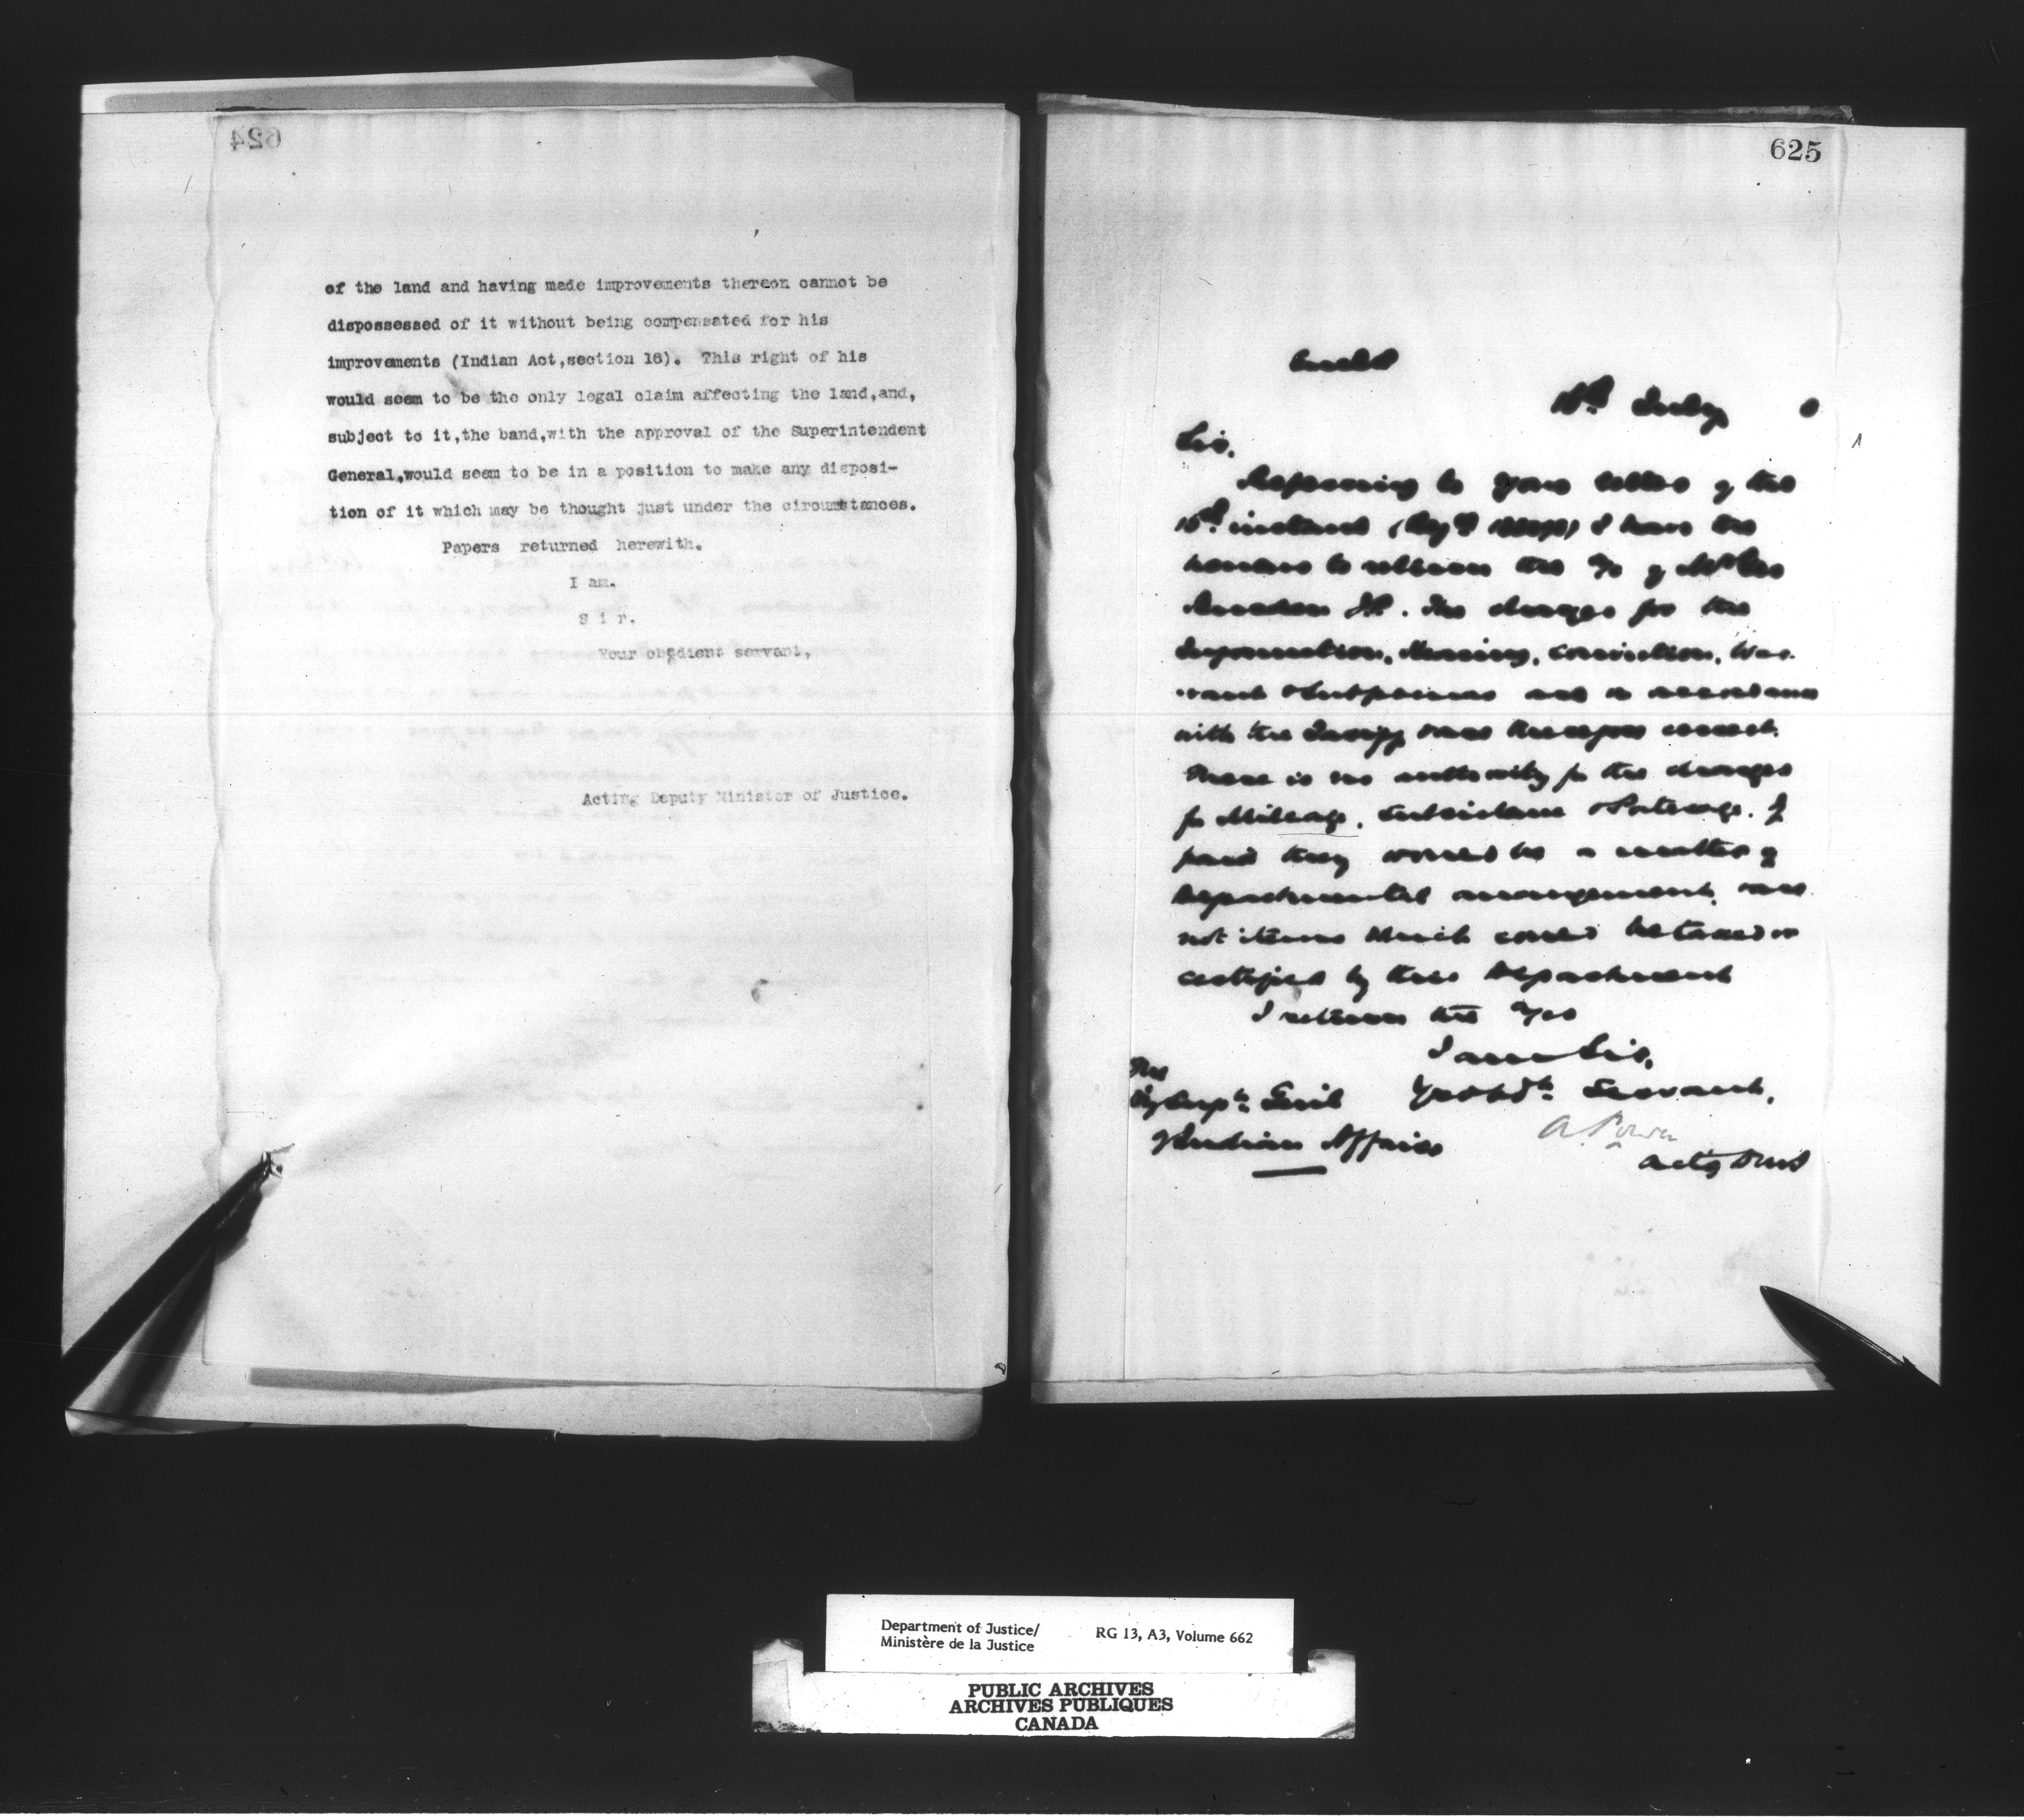 624
of the land and having made improvements thereon cannot be
dispossessed of it without being compensated for his
improvements (Indian Act,section 16). This right of his
would seem to be the only legal claim affecting the land,and,
subject to it,the band,with the approval of the Superintendent
General,would seem to be in a position to make any disposi-
tion of it which may be thought just under the circumstances.
Papers returned herewith.
I am.
S i r.
Your obedient servant,
Acting Deputy Minister of Justice.
625
July
Sir,
Referring to your letter of the
instant I have the
honour to return the a/c of
J.P. The charges for the
Information, Hearing, Conviction, War-
rant & Subpoenas are in accordance
with the Tariff and therefore correct.
There is no authority for the charges
for Mileage, Subsistence & Postage. If
paid they would be a matter of
Departmental arrangement, and
not items which could be taxed or
certified by this Department
I return the a/cs
I am Sir,
Yr obdt. Servant,
A. Power
The
Dy Supt. Genl
of Indian Affairs
Department of Justice/
Ministère de la Justice
RG 13, A3, Volume 662
PUBLIC ARCHIVES
ARCHIVES PUBLIQUES
CANADA